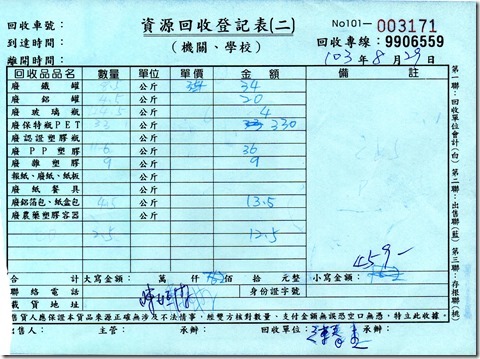 回收車號： 資源回收登記表(二) No101— 003171
到達時間： (機關、學校) 回收專線：9906559
離開時間： 103年8月29日
回收品品名 數量 單位 單價 金額 備註
廢鐵罐 8.5 公斤 34
廢鋁罐 4.5 公斤 20
廢玻璃瓶 公斤 4
廢保特瓶PET 33 公斤 330
廢認證塑膠瓶 公斤
廢PP塑膠 6 公斤 36
廢雜塑膠 9 公斤 9
報紙、廢紙、紙板 公斤
廢紙餐具 公斤
廢鋁箔包、紙盒包 4.5 公斤 13.5
廢農藥塑膠容器 公斤
2.5 12.5
459-
合計 大寫金額： 萬 仟 佰 拾 元整 小寫金額：
聯絡電話 身份證字號
載貨地址
售貨人應保證本貨品來源正確無涉及不法情事，經雙方核對數量，支付金額無誤恐空口無憑，特立此收據。
出售人： 主管： 承辦： 回收單位： 承辦：
第一聯：回收單位會計(白) 第二聯：出售聯(藍) 第三聯：存根聯(桃)